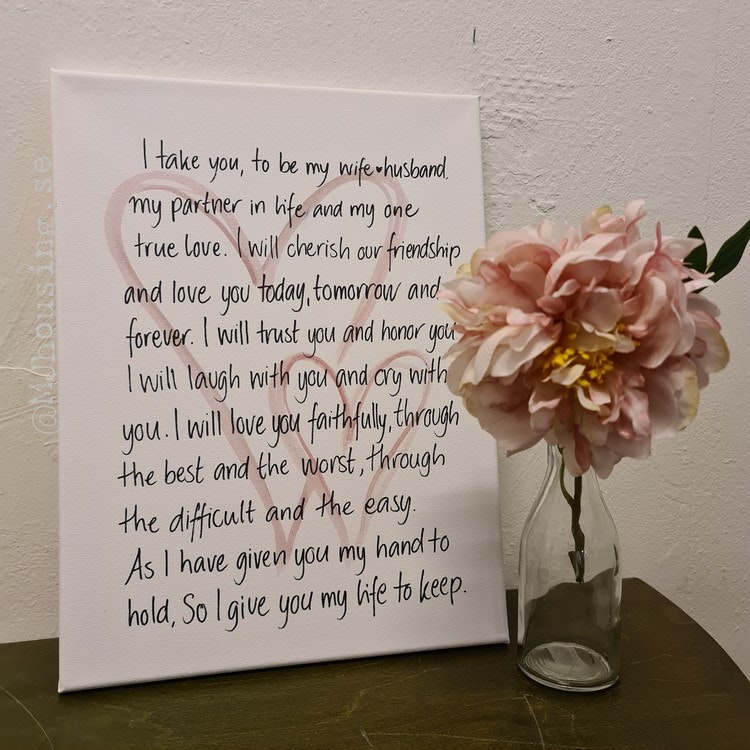 I take you, to be my wife♥husband.
my partner in life and my one
true love. I will cherish our friendship
and love you today, tomorrow and
forever. I will trust you and honor you
I will laugh with you and cry with
you. I will love you faithfully, through
the best and the worst, through
the difficult and the easy.
As I have given you my hand to
hold, So I give you my life to keep.